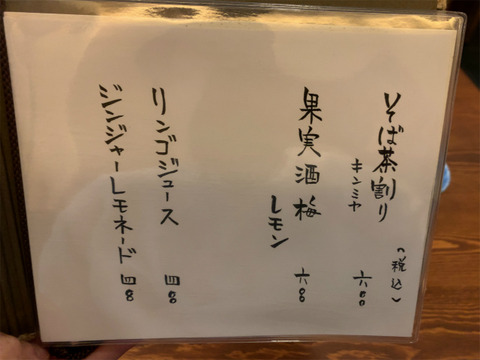 （税込）
そば茶割り
キンミヤ 六〇〇
果実酒 梅 六〇〇
レモン
リンゴジュース 四〇〇
ジンジャーレモネード 四〇〇